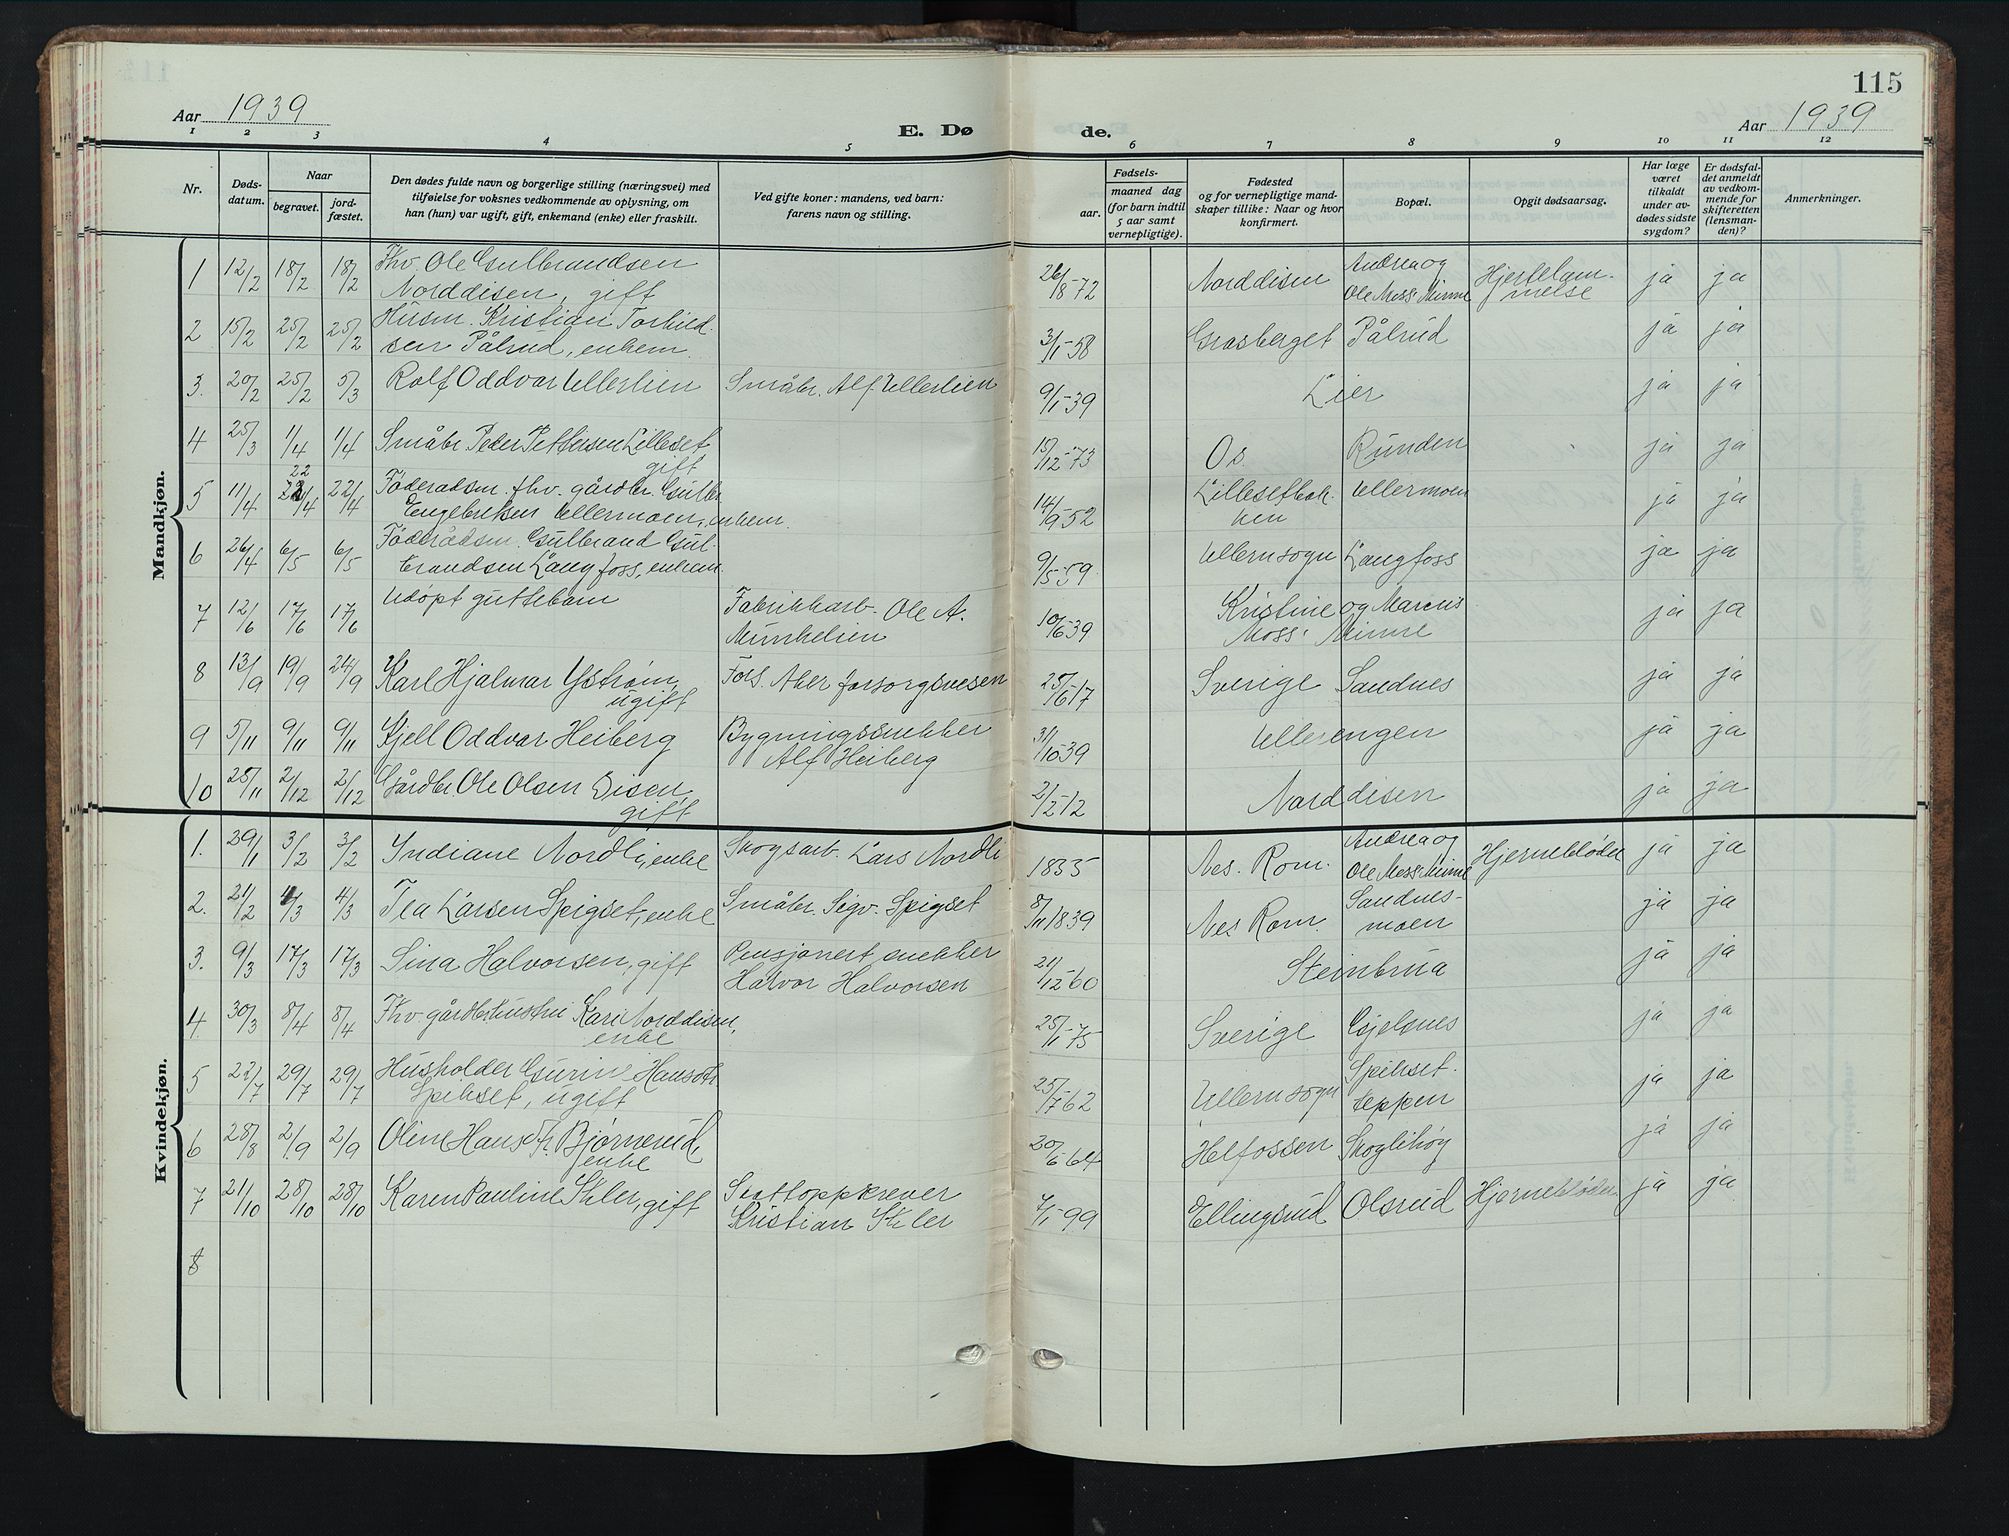 115
Aar 1939
E. Dø
de.
Aar 1939
1 2 3 4 5 6 7 8 9 10 11 12
Nr.
Døds-
datum.
Naar
begravet.
jord-
fæstet.
Den dødes fulde navn og borgerlige stilling (næringsvei) med
tilføielse for voksnes vedkommende av oplysning, om
han (hun) var ugift, gift, enkemand (enke) eller fraskilt.
Ved gifte koner: mandens, ved barn:
farens navn og stilling.
Fødsels-
aar.
maaned dag
(for barn indtil
5 aar samt
vernepligtige).
Fødested
og for vernepligtige mand-
skaper tillike: Naar og hvor
konfirmert.
Bopæl.
Opgit dødsaarsag.
Har læge
været
tilkaldt
under av-
dødes sidste
sygdom?
Er dødsfal-
det anmeldt
av vedkom-
mende for
skifteretten
(lensman-
den)?
Anmerkninger.
Mandkjøn.
1 12/2 18/2 18/2 Fhv. Ole Gulbrandsen
Norddisen, gift
26/8-72 Norddisen Andrea og
Ole Moss' Minne
Hjertelam-
melse
ja ja
2 15/2 25/2 25/2 Husm. Kristian Torkild-
sen Pålrud, enkem.
3/1-58 Grasberget Pålrud ja ja
3. 20/2 25/2 5/3 Rolf Oddvar Ullerlien Småbr. Alf Ullerlien 9/1-39 Lier ja ja
4 25/3 1/4 1/4 Småbr Peder Pettersen Lilleset
gift
15/12-73 Os Runden ja ja
5 11/4 22/4 22/4 Føderådsm. fhv. gårdbr. Gulbr.
Engebretsen Ullermoen, enkem.
14/9-52 Lillesetbak-
ken
Ullermoen ja ja
6 26/4 6/5 6/5 Føderådsm. Gulbrand Gul-
brandsen Langfoss, enkem.
9/5-59 Ullern sogn Langfoss ja ja
7 12/6 17/6 17/6 Udøpt guttebarn Fabrikkarb. Ole A.
Munkelien
10/6-39 Kristine og Marcus
Moss' Minne
ja ja
8 13/9 19/9 24/9 Karl Hjalmar Ystrøm,
ugift
Fors. Aker forsorgsvesen 25/6-17 Sverige Sandnes ja ja
9 5/11 9/11 9/11 Kjell Oddvar Heiberg Bygningssnekker
Alf Heiberg
31/10-39 Ullerengen ja ja
10 25/11 2/12 2/12 Gårdbr Ole Olsen Disen,
gift
2/2-12 Norddisen ja ja
Kvindekjøn.
1. 29/1 3/2 3/2 Indiane Nordli, enke Skogsarb. Lars Nordli 1835 Nes. Rom. Andrea og
Ole Moss' Minne
Hjerneblødn
ja ja
2. 21/2 4/3 4/3 Tea Larsen Spigset, enke Småbr. Sigv. Spigset 8/11 1839 Nes Rom. Sandnes-
moen
ja ja
3. 9/3 17/3 17/3 Sina Halvorsen, gift Pensjonert snekker
Halvor Halvorsen
21/12-60 Steinbrua ja ja
4. 30/3 8/4 8/4 Fhv. gårdbr.hustru Kari Norddisen,
enke
25/1-75 Sverige Gjelsnes ja ja
5 22/7 29/7 29/7 Husholder Gurine Hansdtr.
Spikset, ugift
25/7-62 Ullern sogn Spikset-
teppen
ja ja
6 28/8 2/9 2/9 Oline Hansdtr. Bjørnerud,
enke
20/6-64 Helfossen Skoglihøg ja ja
7 21/10 28/10 28/10 Karen Pauline Ihler, gift Skattoppkrever
Kristian Ihler
7/1-99 Ellingsrud Olsrud Hjerneblødn ja ja
8